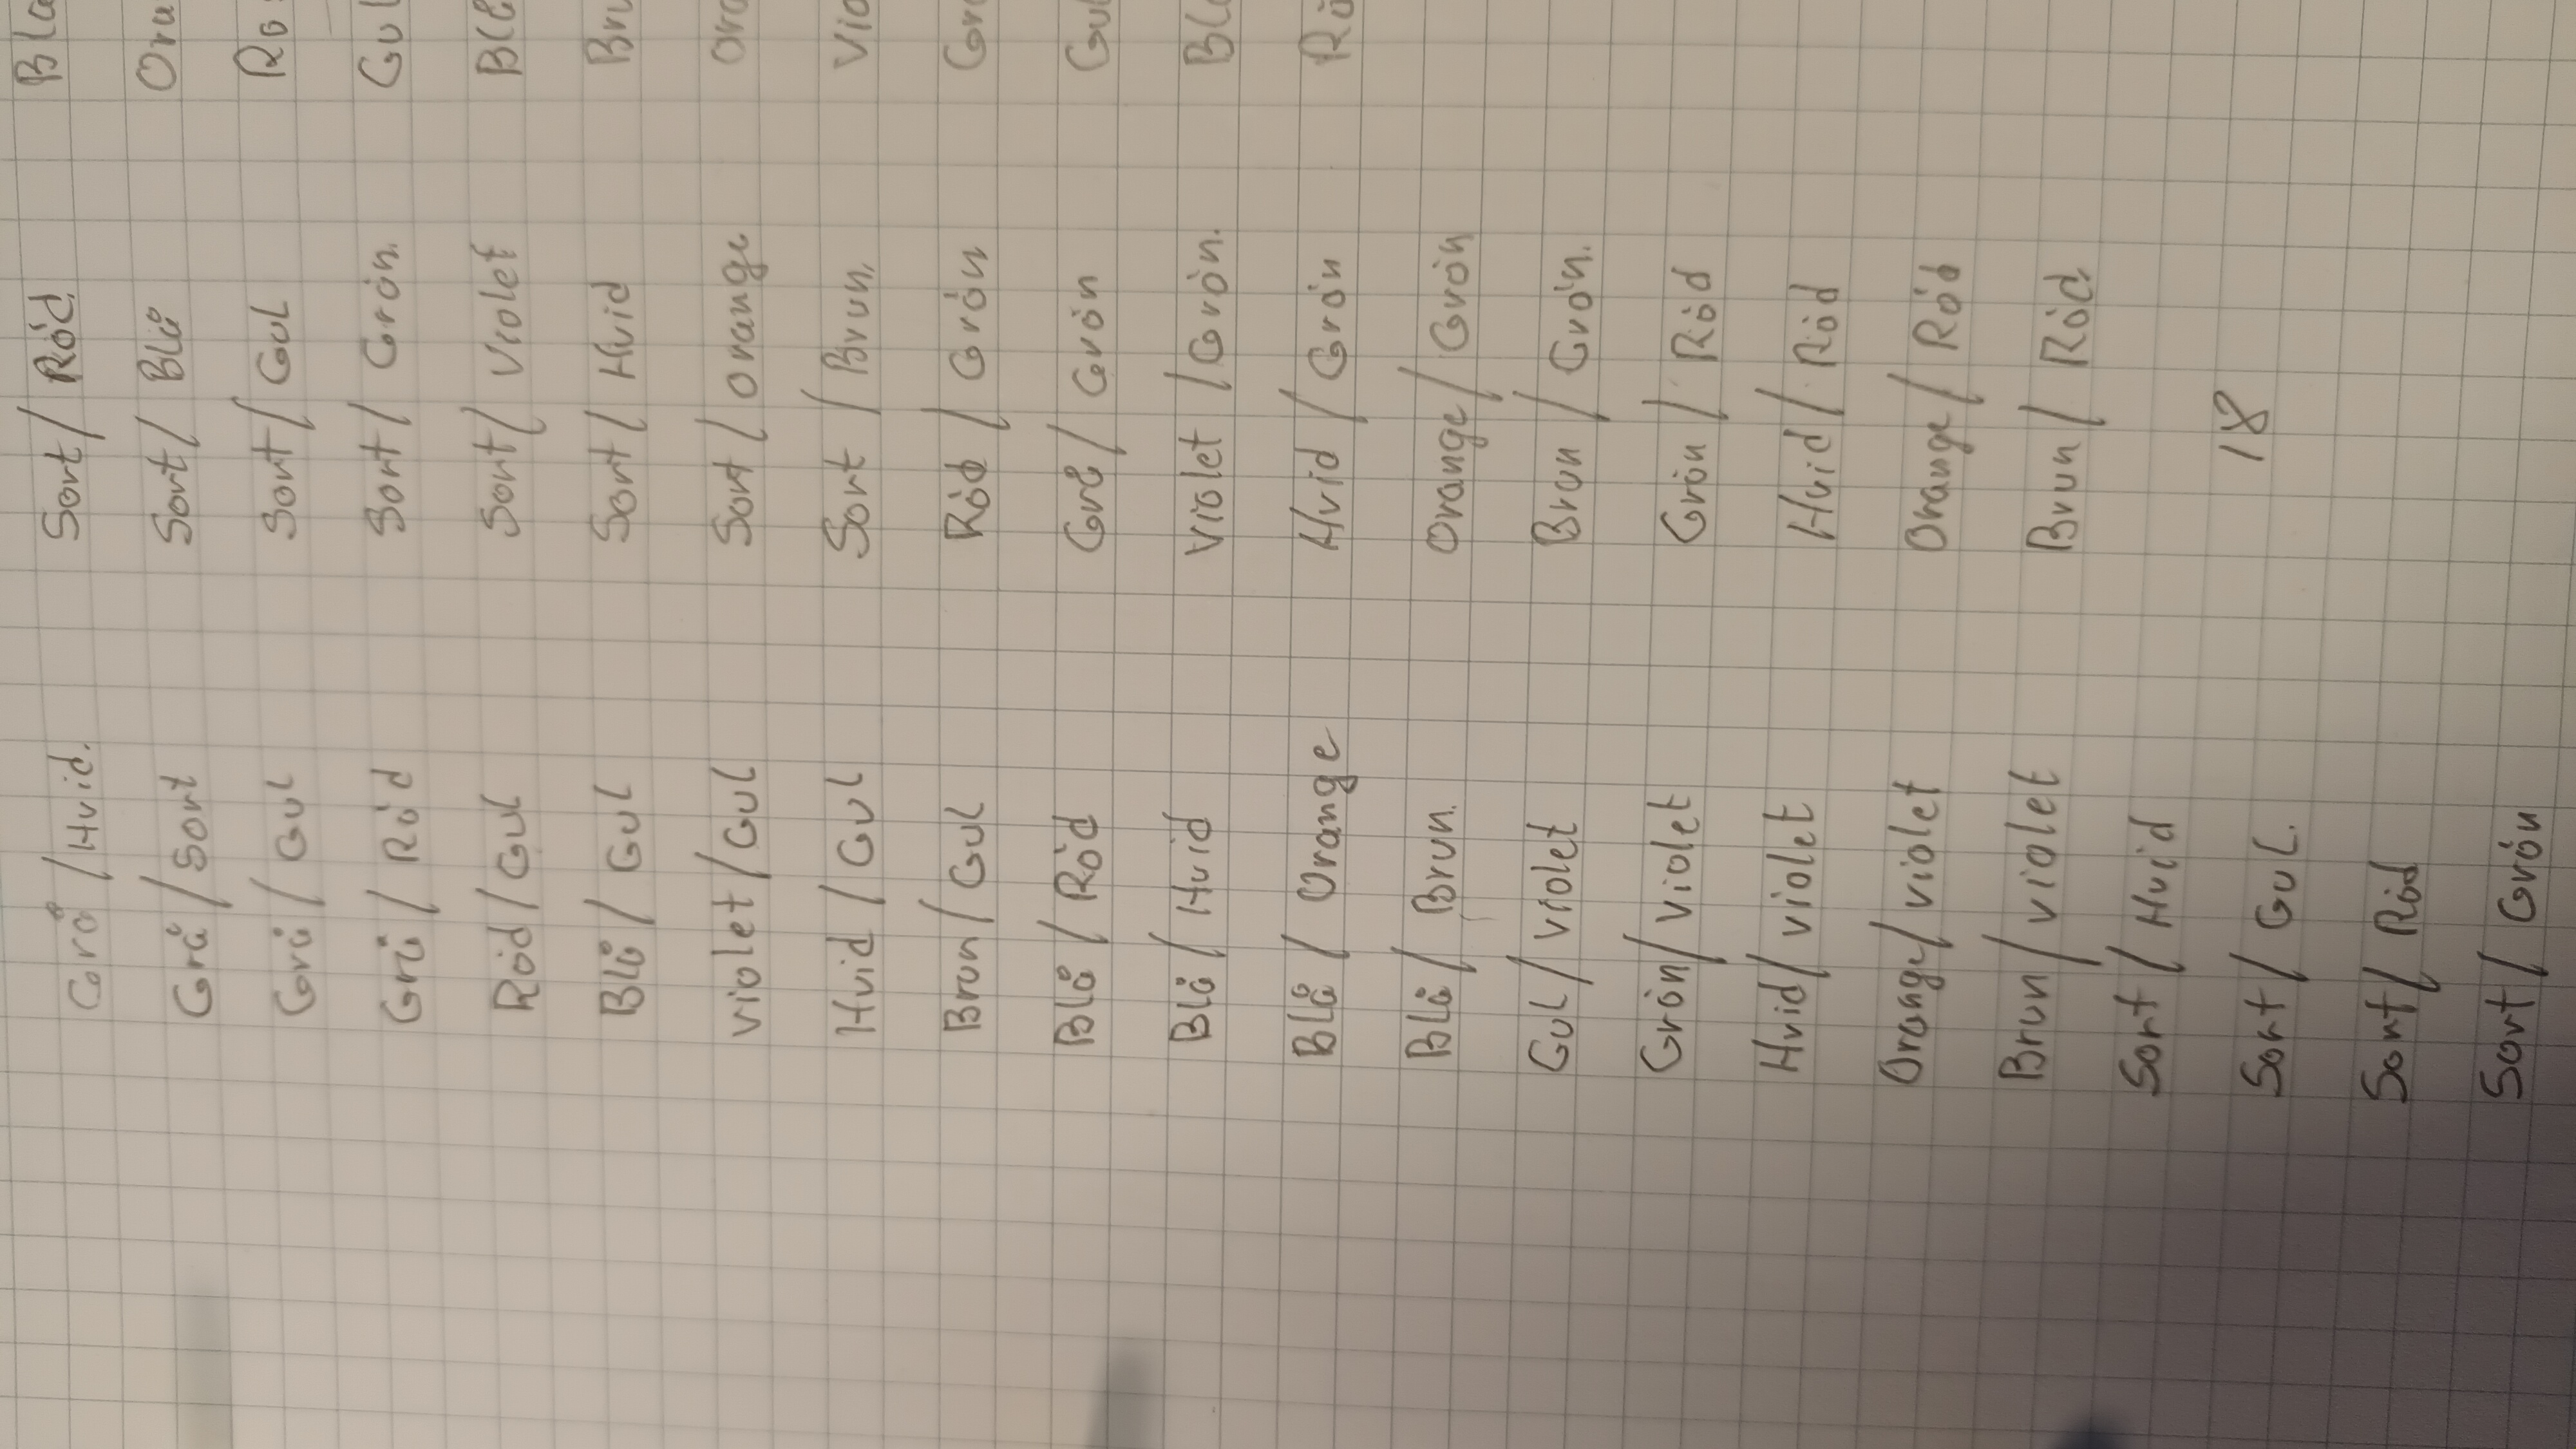 Grå / Hvid.
Grå / Sort
Grå / Gul
Grå / Röd
Röd / Gul
Blå / Gul
violet / Gul
Hvid / Gul
Brun / Gul
Blå / Röd
Blå / Hvid
Blå / Orange
Blå / Brun.
Gul / violet
Grön / violet
Hvid / violet
Orange / violet
Brun / violet
Sort / Hvid
Sort / Gul.
Sort / Röd
Sort / Grön
Sort / Röd.
Sort / Blå
Sort / Gul
Sort / Grön.
Sort / Violet
Sort / Hvid
Sort / orange
Sort / Brun,
Röd / Grön
Grå / Grön
Violet / Grön.
Hvid / Grön
Orange / Grön
Brun / Grön.
Grön / Röd
Hvid / Röd
Orange / Röd
Brun / Röd
18
Gul
Blå